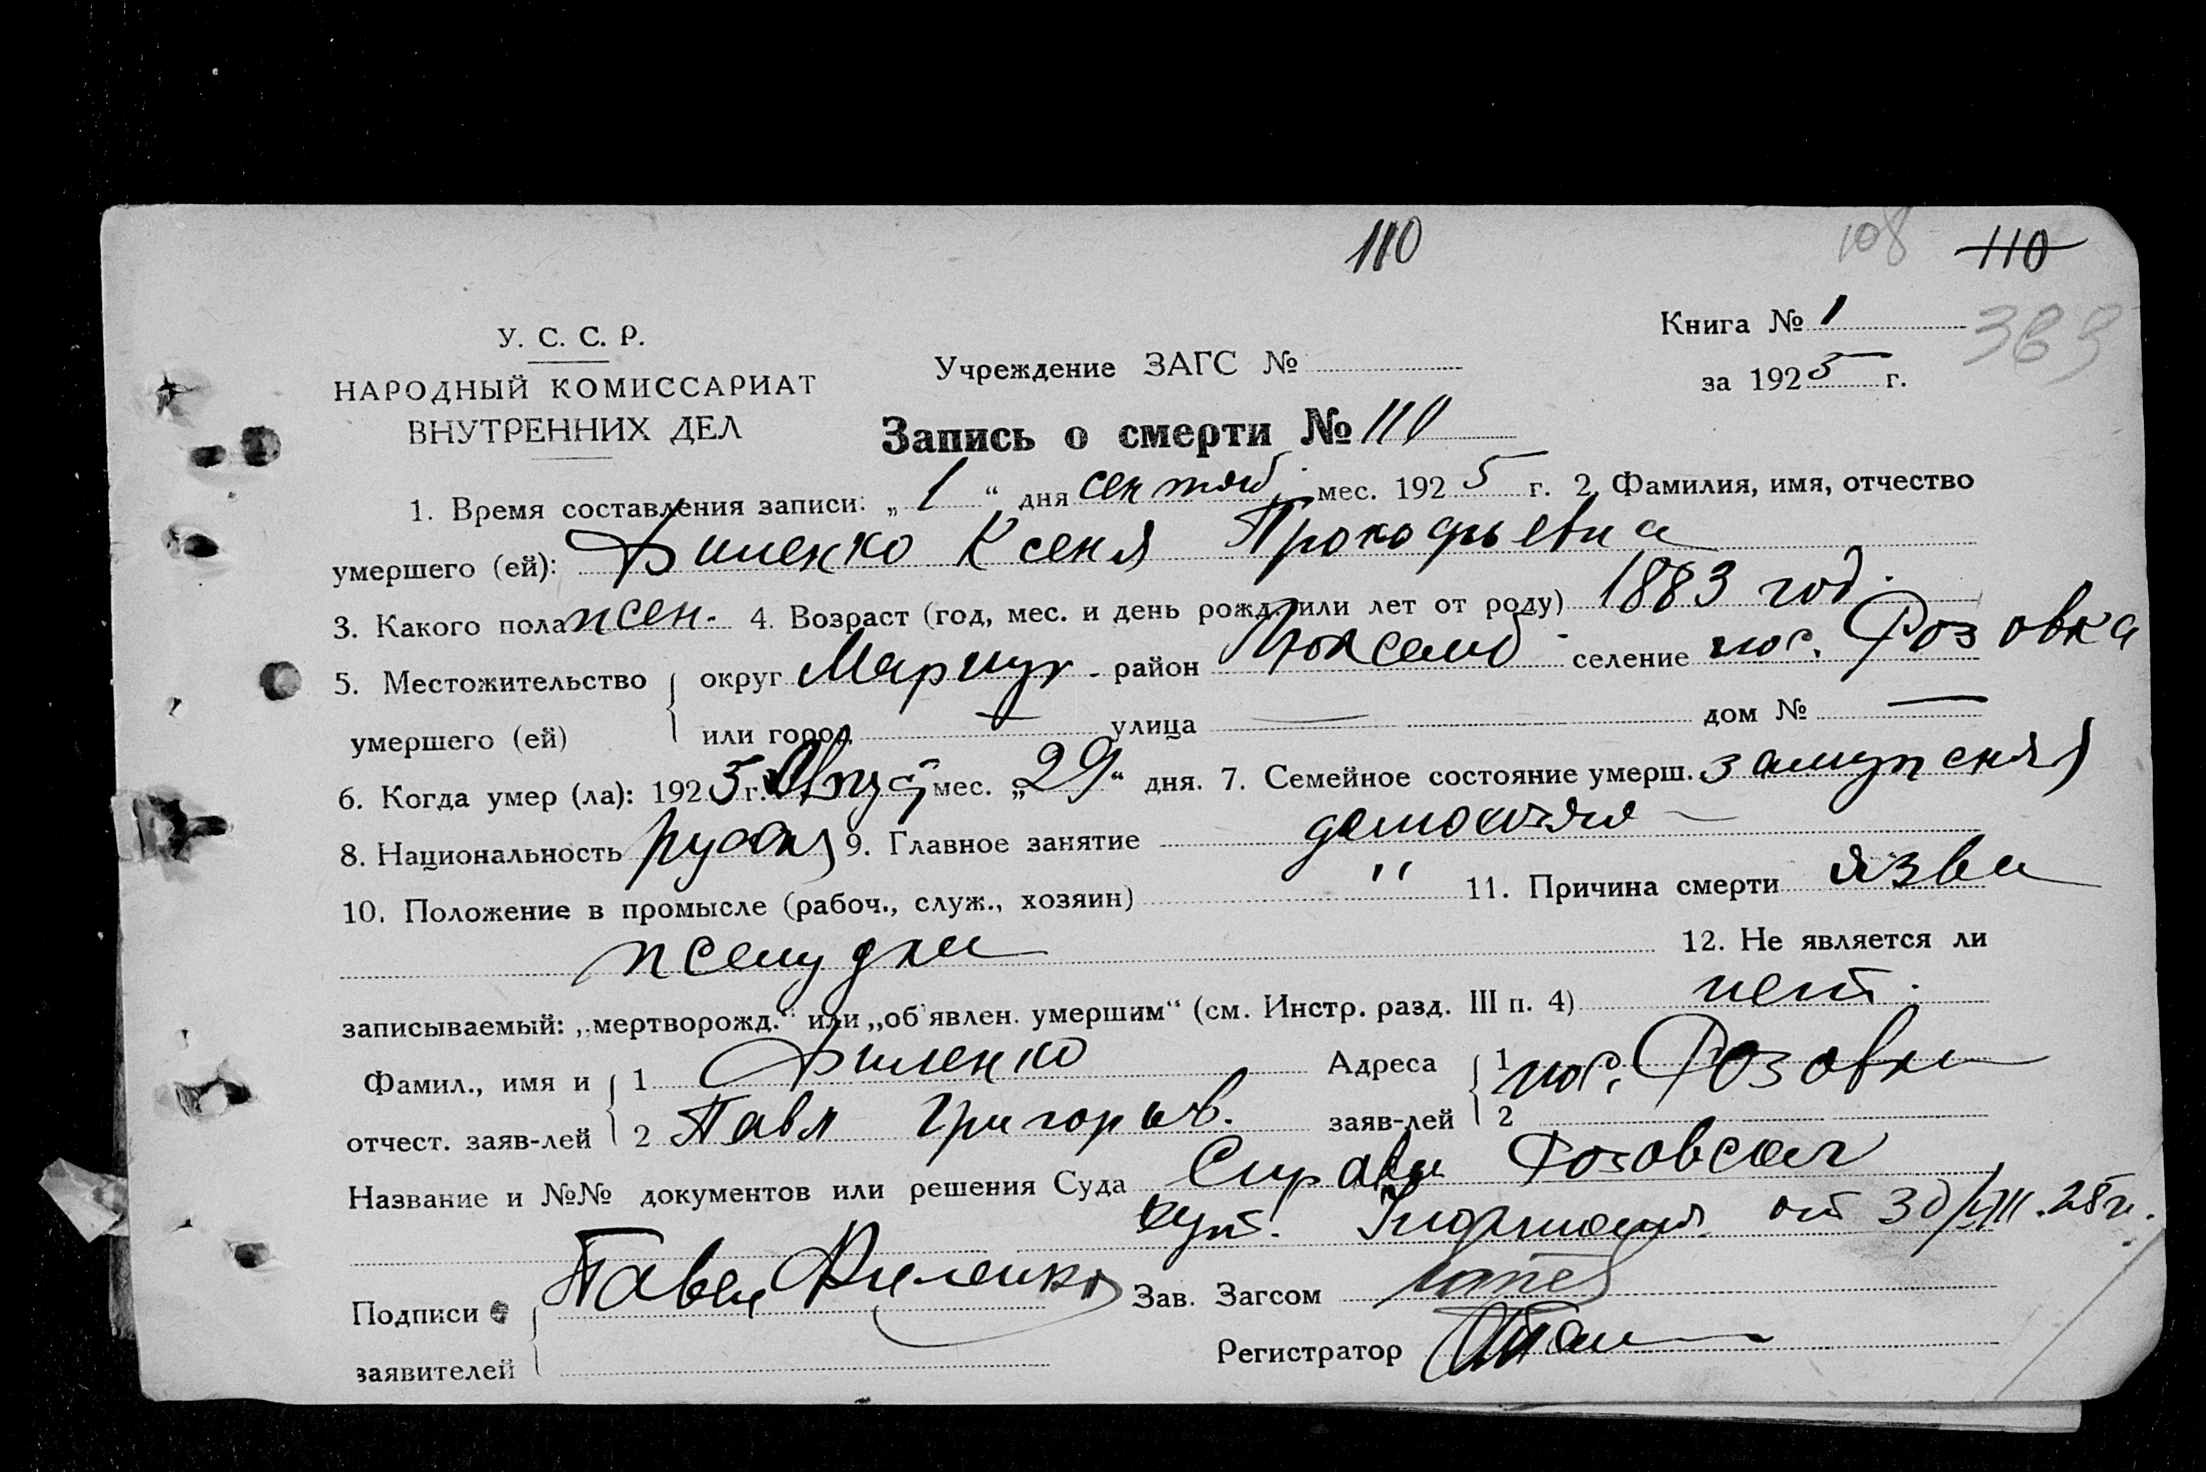 110
108 110
У. С. С. Р.
НАРОДНЫЙ КОМИССАРИАТ
ВНУТРЕННИХ ДЕЛ
Учреждение ЗАГС №
Книга № 1
за 1925 г.
Запись о смерти № 110
1. Время составления записи: „ 1 “ дня сентяб. мес. 1925 г. 2. Фамилия, имя, отчество
умершего (ей): Биленко Ксеня Прокофьевна
3. Какого пола жен. 4. Возраст (год, мес. и день рожд. или лет от роду) 1883 год.
5. Местожительство округ Мариуп. район селение пос. Розовка
умершего (ей) или город — улица — дом № —
6. Когда умер (ла): 1925 г. Авгус мес. „29“ дня. 7. Семейное состояние умерш. замужняя
8. Национальность русская 9. Главное занятие
10. Положение в промысле (рабоч., служ., хозяин) " 11. Причина смерти язва
желудка 12. Не является ли
записываемый: „мертворожд.“ или „об'явлен. умершим“ (см. Инстр. разд. III п. 4) нет.
Фамил., имя и 1 Биленко Адреса 1 пос. Розовка
отчест. заяв-лей 2 Павл Григорьев. заяв-лей 2
Название и №№ документов или решения Суда Справка Розовская
от 30/VIII.25 г.
Подписи Павел Биленко Зав. Загсом
заявителей Регистратор